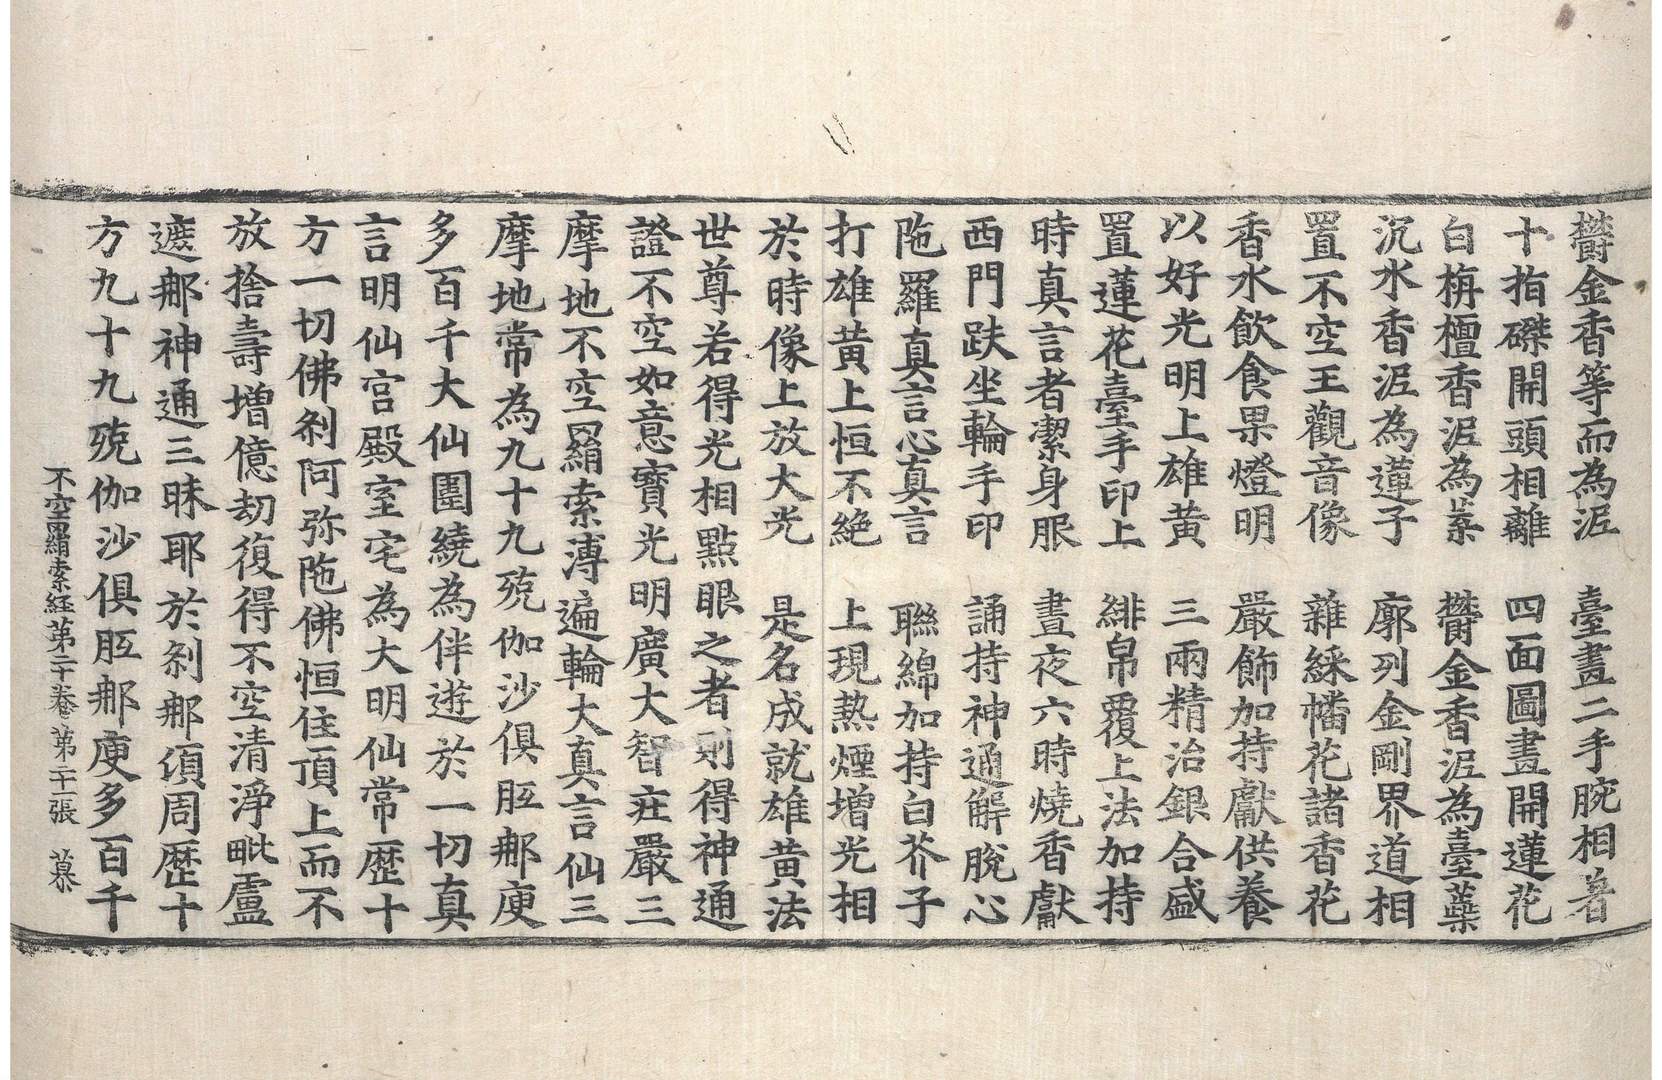 欝金香等而為泥　臺畫二手腕相著
十指磔開頭相離　四面圖畫開蓮花
白栴檀香泥為蘂　欝金香泥為臺蘂
沉水香泥為蓮子　廓列金剛界道相
置不空王觀音像　雜綵幡花諸香花
香水飲食果燈明　嚴飾加持獻供養
以好光明上雄黃　三兩精治銀合盛
置蓮花臺手印上　緋帛覆上法加持
時真言者潔身服　晝夜六時燒香獻
西門趺坐輪手印　誦持神通解脫心
陁羅真言心真言　聯綿加持白芥子
打雄黃上恒不絶　上現熱煙增光相
於時像上放大光　是名成就雄黃法
世尊若得光相點眼之者則得神通
證不空如意寶光明廣大智莊嚴三
摩地不空羂索溥遍輪大真言仙三
摩地常為九十九殑伽沙俱胝那庾
多百千大仙圍繞為伴遊於一切真
言明仙宮殿室宅為大明仙常歷十
方一切佛剎阿弥陁佛恒住頂上而不
放捨壽增億劫復得不空清淨毗盧
遮那神通三昧耶於剎那頃周歷十
方九十九殑伽沙俱胝那庾多百千
不空羂索経第二十卷　第二十一張　慕